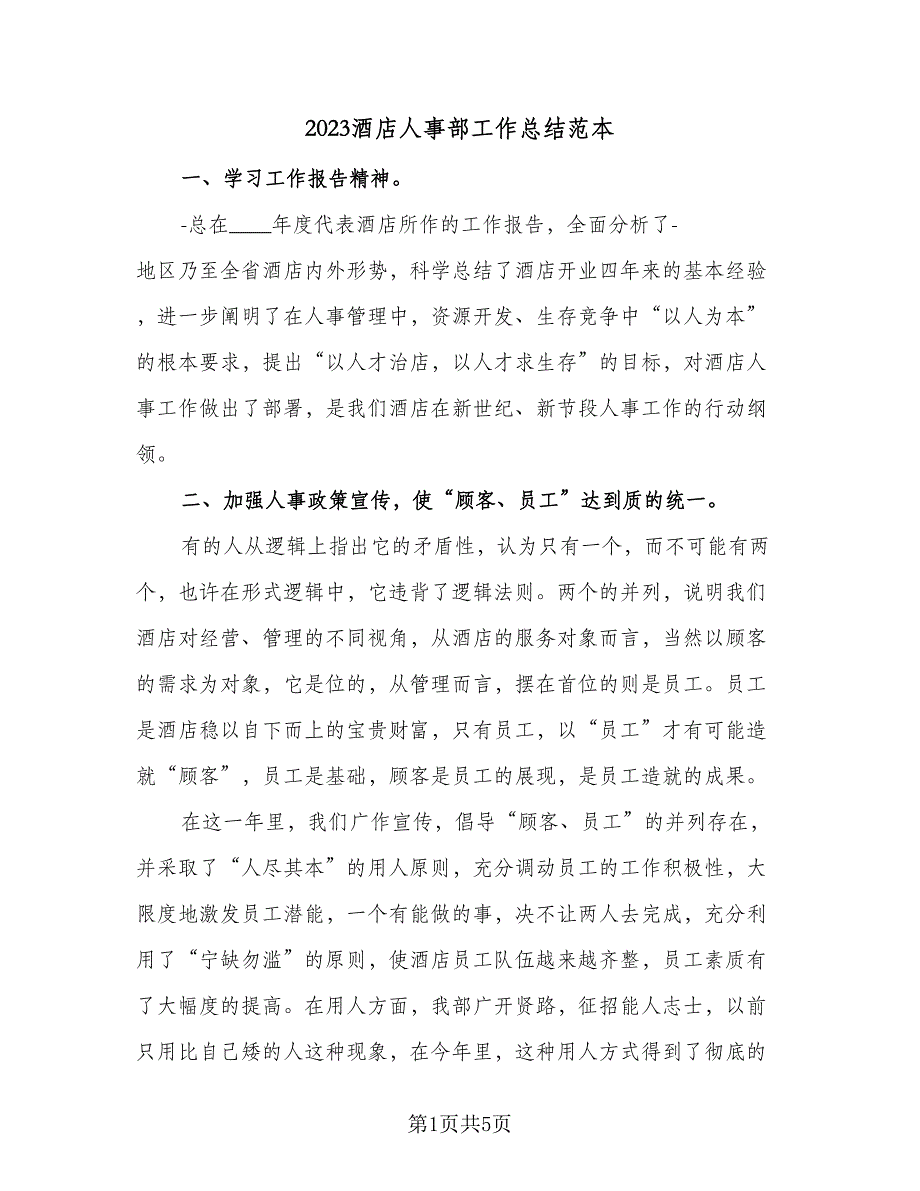 2023酒店人事部工作总结范本
一、学习工作报告精神。
-总在____年度代表酒店所作的工作报告，全面分析了-
地区乃至全省酒店内外形势，科学总结了酒店开业四年来的基本经验
，进一步阐明了在人事管理中，资源开发、生存竞争中“以人为本”
的根本要求，提出“以人才治店，以人才求生存”的目标，对酒店人
事工作做出了部署，是我们酒店在新世纪、新节段人事工作的行动纲
领。
二、加强人事政策宣传，使“顾客、员工”达到质的统一。
有的人从逻辑上指出它的矛盾性，认为只有一个，而不可能有两
个，也许在形式逻辑中，它违背了逻辑法则。两个的并列，说明我们
酒店对经营、管理的不同视角，从酒店的服务对象而言，当然以顾客
的需求为对象，它是位的，从管理而言，摆在首位的则是员工。员工
是酒店稳以自下而上的宝贵财富，只有员工，以“员工”才有可能造
就“顾客”，员工是基础，顾客是员工的展现，是员工造就的成果。
在这一年里，我们广作宣传，倡导“顾客、员工”的并列存在，
并采取了“人尽其本”的用人原则，充分调动员工的工作积极性，大
限度地激发员工潜能，一个有能做的事，决不让两人去完成，充分利
用了“宁缺勿滥”的原则，使酒店员工队伍越来越齐整，员工素质有
了大幅度的提高。在用人方面，我部广开贤路，征招能人志士，以前
只用比自己矮的人这种现象，在今年里，这种用人方式得到了彻底的
第1页共5页